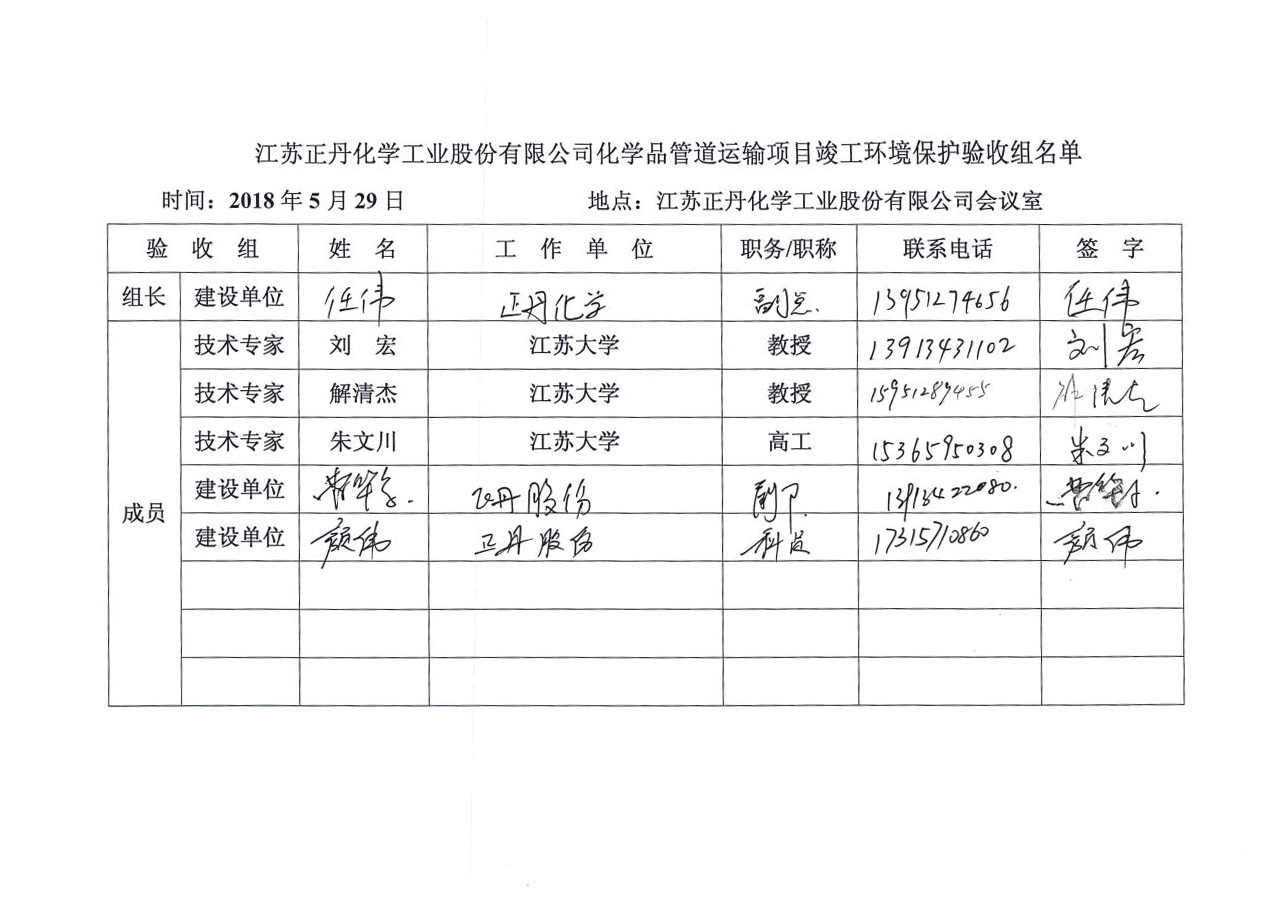 江苏正丹化学工业股份有限公司化学品管道运输项目竣工环境保护验收组名单
时间：2018 年 5 月 29 日 地点：江苏正丹化学工业股份有限公司会议室
验 收 组 姓 名 工 作 单 位 职务/职称 联系电话 签 字
组长 建设单位 任伟 正丹化学 副总. 13951274656 任伟
技术专家 刘 宏 江苏大学 教授 13913431102 刘宏
技术专家 解清杰 江苏大学 教授 15951289455
技术专家 朱文川 江苏大学 高工 15365950308 朱文川
成员 建设单位 正丹股份 13913422080.
建设单位 顾伟 正丹股份 科员 17315710860 顾伟